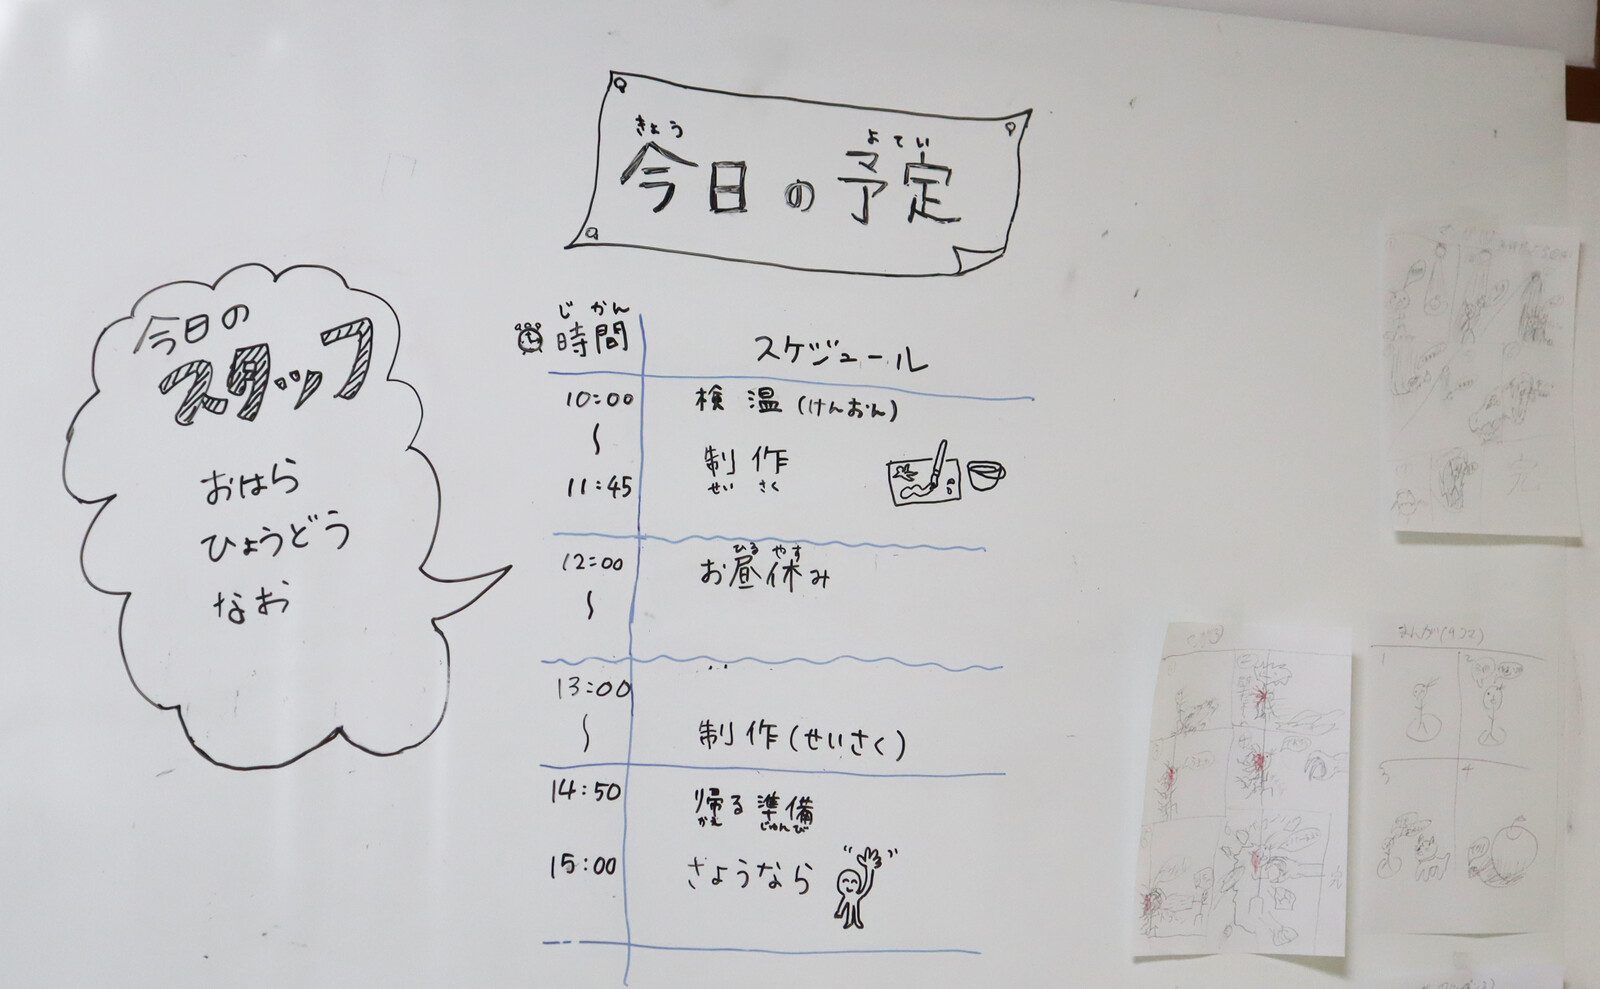 きょう よてい
今日の予定
今日の
スタッフ
おはら
ひょうどう
なお
じかん
時間 スケジュール
10:00 検温(けんおん)
〜
制作
せい さく
11:45
ひる やす
12:00 お昼休み
〜
13:00
〜
制作(せいさく)
14:50 帰る準備
かえ じゅんび
15:00 さようなら
まんが(4コマ)
1 2
3 4
完
完